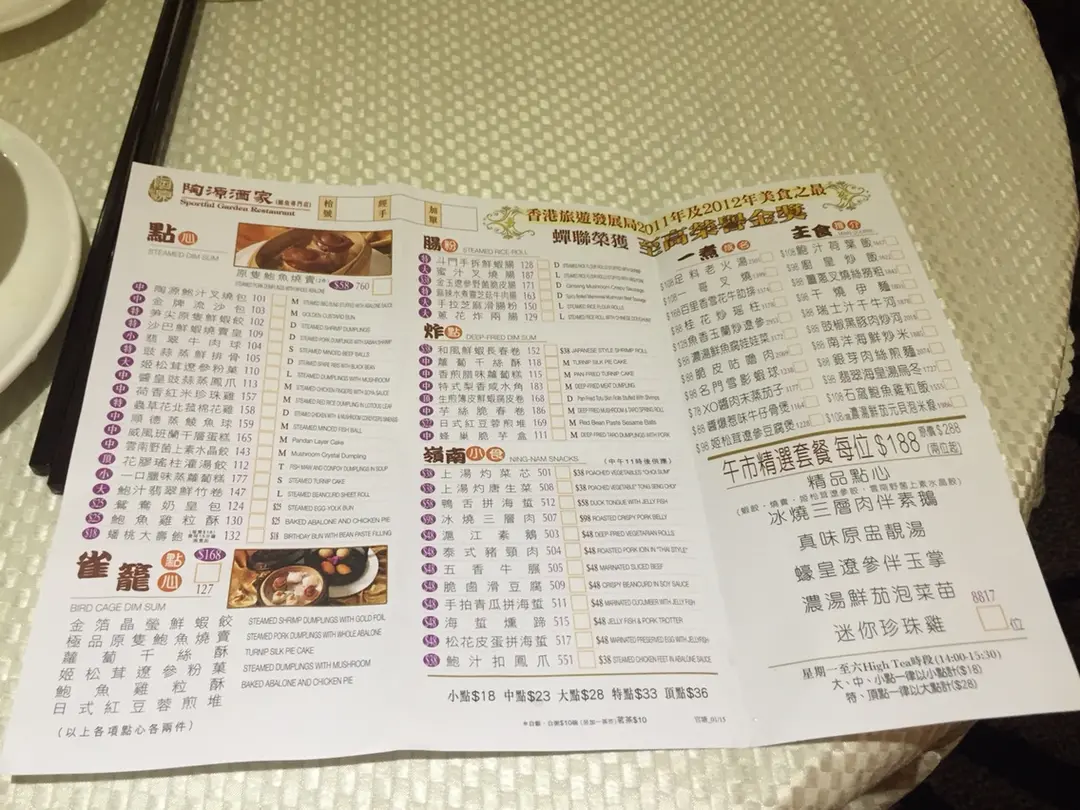 陶源酒家
Sportful Garden Restaurant
枱號
經手
加單
香港旅遊發展局2011年及2012年美食之最
蟬聯榮獲 至高榮譽金獎
點心
STEAMED DIM SUM
原隻鮑魚燒賣
$58 760
陶源鮑汁叉燒包 101
金牌流沙包 103
M GOLDEN CUSTARD BUN
筍尖原隻鮮蝦餃 102
D STEAMED SHRIMP DUMPLINGS
沙巴鮮蝦燒賣皇 109
翡翠牛肉球 104
S STEAMED MINCED BEEF BALLS
豉蒜蒸鮮排骨 105
D STEAMED SPARE RIBS WITH BLACK BEAN
姬松茸遼參粉菓 110
L STEAMED DUMPLINGS WITH MUSHROOM
醬皇豉蒜蒸鳳爪 113
荷香紅米珍珠雞 157
蟲草花北菇棉花雞 158
順德蒸鯪魚球 159
M STEAMED MINCED FISH BALL
威風班蘭千層蛋糕 165
M Pandan Layer Cake
雲南野菌上素水晶餃 143
M Mushroom Crystal Dumpling
花膠瑤柱灌湯餃 112
一口臘味蒸蘿蔔糕 177
S STEAMED TURNIP CAKE
鮑汁翡翠鮮竹卷 147
L STEAMED BEANCURD SHEET ROLL
鴛鴦奶皇包 124
$25 STEAMED EGG-YOLK BUN
鮑魚雞粒酥 130
$25 BAKED ABALONE AND CHICKEN PIE
蟠桃大壽飽 132
$18 BIRTHDAY BUN WITH BEAN PASTE FILLING
雀籠點心
$168
127
BIRD CAGE DIM SUM
金箔晶瑩鮮蝦餃
STEAMED SHRIMP DUMPLINGS WITH GOLD FOIL
極品原隻鮑魚燒賣
STEAMED PORK DUMPLINGS WITH WHOLE ABALONE
蘿蔔千絲酥
TURNIP SILK PIE CAKE
姬松茸遼參粉菓
STEAMED DUMPLINGS WITH MUSHROOM
鮑魚雞粒酥
BAKED ABALONE AND CHICKEN PIE
日式紅豆蓉煎堆
(以上各項點心各兩件)
腸粉
STEAMED RICE ROLL
斗門手拆鮮蝦腸 128
蜜汁叉燒腸 187
金玉遼參野菌脆皮腸 171
麻辣水煮靈芝菇牛肉腸 163
手拉芝麻滑腸粉 150
L RICE FLOUR ROLLS
蔥花炸兩腸 129
炸點
DEEP-FRIED DIM SUM
和風鮮蝦長春卷 152
$38 JAPANESE STYLE SHRIMP ROLL
蘿蔔千絲酥 118
M TURNIP SILK PIE CAKE
香煎臘味蘿蔔糕 115
M PAN FRIED TURNIP CAKE
特式梨香咸水角 183
M DEEP FRIED MEAT DUMPLING
生煎薄皮鮮蝦腐皮卷 168
芋絲脆春卷 186
日式紅豆蓉煎堆 169
M Red Bean Paste Sesame Balls
蜂巢脆芋盒 111
M DEEP-FRIED TARO DUMPLINGS WITH PORK
嶺南小食
NING-NAM SNACKS
(中午11時後供應)
上湯灼菜芯 501
$38 POACHED VEGETABLES "CHOI SUM"
上湯灼唐生菜 508
$38 POACHED VEGETABLE "TONG SENG CHOI"
鴨舌拼海蜇 512
$58 DUCK TONGUE WITH JELLY FISH
冰燒三層肉 507
$98 ROASTED CRISPY PORK BELLY
滬江素鵝 503
$48 DEEP-FRIED VEGETARIAN ROLLS
泰式豬頸肉 504
$48 ROASTED PORK JOIN IN "THAI STYLE"
五香牛𦟌 505
$48 MARINATED SLICED BEEF
脆鹵滑豆腐 509
$48 CRISPY BEANCURD IN SOY SAUCE
手拍青瓜拼海蜇 511
$48 MARINATED CUCUMBER WITH JELLY FISH
海蜇燻蹄 515
$48 JELLY FISH & PORK TROTTER
松花皮蛋拼海蜇 517
$48 MARINATED PRESERVED EGG WITH JELLYFISH
鮑汁扣鳳爪 551
$38 STEAMED CHICKEN FEET IN ABALONE SAUCE
小點$18 中點$23 大點$28 特點$33 頂點$36
茗茶$10
一煮
足料老火湯
一哥叉燒
百里香雪花牛肋排
桂花炒瑤柱
魚香玉蘭炒遼參
濃湯鮮魚腐娃娃菜
脆皮咕嚕肉
名門雪影蝦球
$78 XO醬肉末蒸茄子
醬爆惹味牛仔骨煲
姬松茸遼參豆腐煲
主食 推介
鮑汁荷葉飯
廚皇炒飯
薑蔥叉燒絲撈粗
干燒伊麵
瑞士汁干牛河
豉椒黑豚肉炒河
南洋海鮮炒米
銀芽肉絲煎麵
翡翠海皇湯烏冬
石鍋鮑魚雞粒飯
午市精選套餐 每位$188
原價$288
(兩位起)
精品點心
(蝦餃，燒賣，姬松茸遼參餃，雲南野菌上素水晶餃)
冰燒三層肉伴素鵝
真味原盅靚湯
蠔皇遼參伴玉掌
濃湯鮮茄泡菜苗
迷你珍珠雞
8817
位
星期一至六High Tea時段(14:00-15:30)
大、中、小點一律以小點計($18)
特、頂點一律以大點計($28)